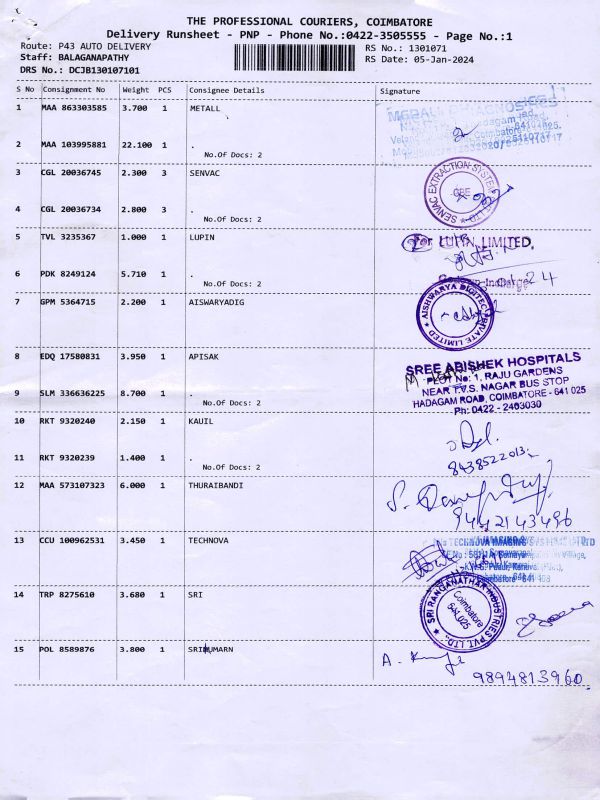 THE PROFESSIONAL COURIERS, COIMBATORE
Delivery Runsheet - PNP - Phone No.:0422-3505555 - Page No.:1
Route: P43 AUTO DELIVERY
Staff: BALAGANAPATHY
DRS No.: DCJB130107101
RS No.: 1301071
RS Date: 05-Jan-2024
S No Consignment No Weight PCS Consignee Details Signature
1 MAA 863303585 3.700 1 METALL
2 MAA 103995881 22.100 1 .
No.Of Docs: 2
3 CGL 20036745 2.300 3 SENVAC
SENVAC EXTRACTION SYSTEMS
CBE
4 CGL 20036734 2.800 3 .
No.Of Docs: 2
5 TVL 3235367 1.000 1 LUPIN
For LUPIN LIMITED,
6 PDK 8249124 5.710 1 .
No.Of Docs: 2
7 GPM 5364715 2.200 1 AISWARYADIG
AISHWARYA DIGITEC PRIVATE LIMITED
8 EDQ 17580831 3.950 1 APISAK
SREE ABISHEK HOSPITALS
PLOT No: 1, RAJU GARDENS
NEAR T.V.S. NAGAR BUS STOP
HADAGAM ROAD, COIMBATORE - 641 025
Ph: 0422 - 2403030
9 SLM 336636225 8.700 1 .
No.Of Docs: 2
10 RKT 9320240 2.150 1 KAUIL
8438522013
11 RKT 9320239 1.400 1 .
No.Of Docs: 2
12 MAA 573107323 6.000 1 THURAIBANDI
9442143496
13 CCU 100962531 3.450 1 TECHNOVA
TECHNOVA IMAGING SYSTEMS
14 TRP 8275610 3.680 1 SRI
SRI RANGANATHAR INDUSTRIES PVT. LTD.
Coimbatore
641 025
15 POL 8589876 3.800 1 SRIKUMARN
9894813960